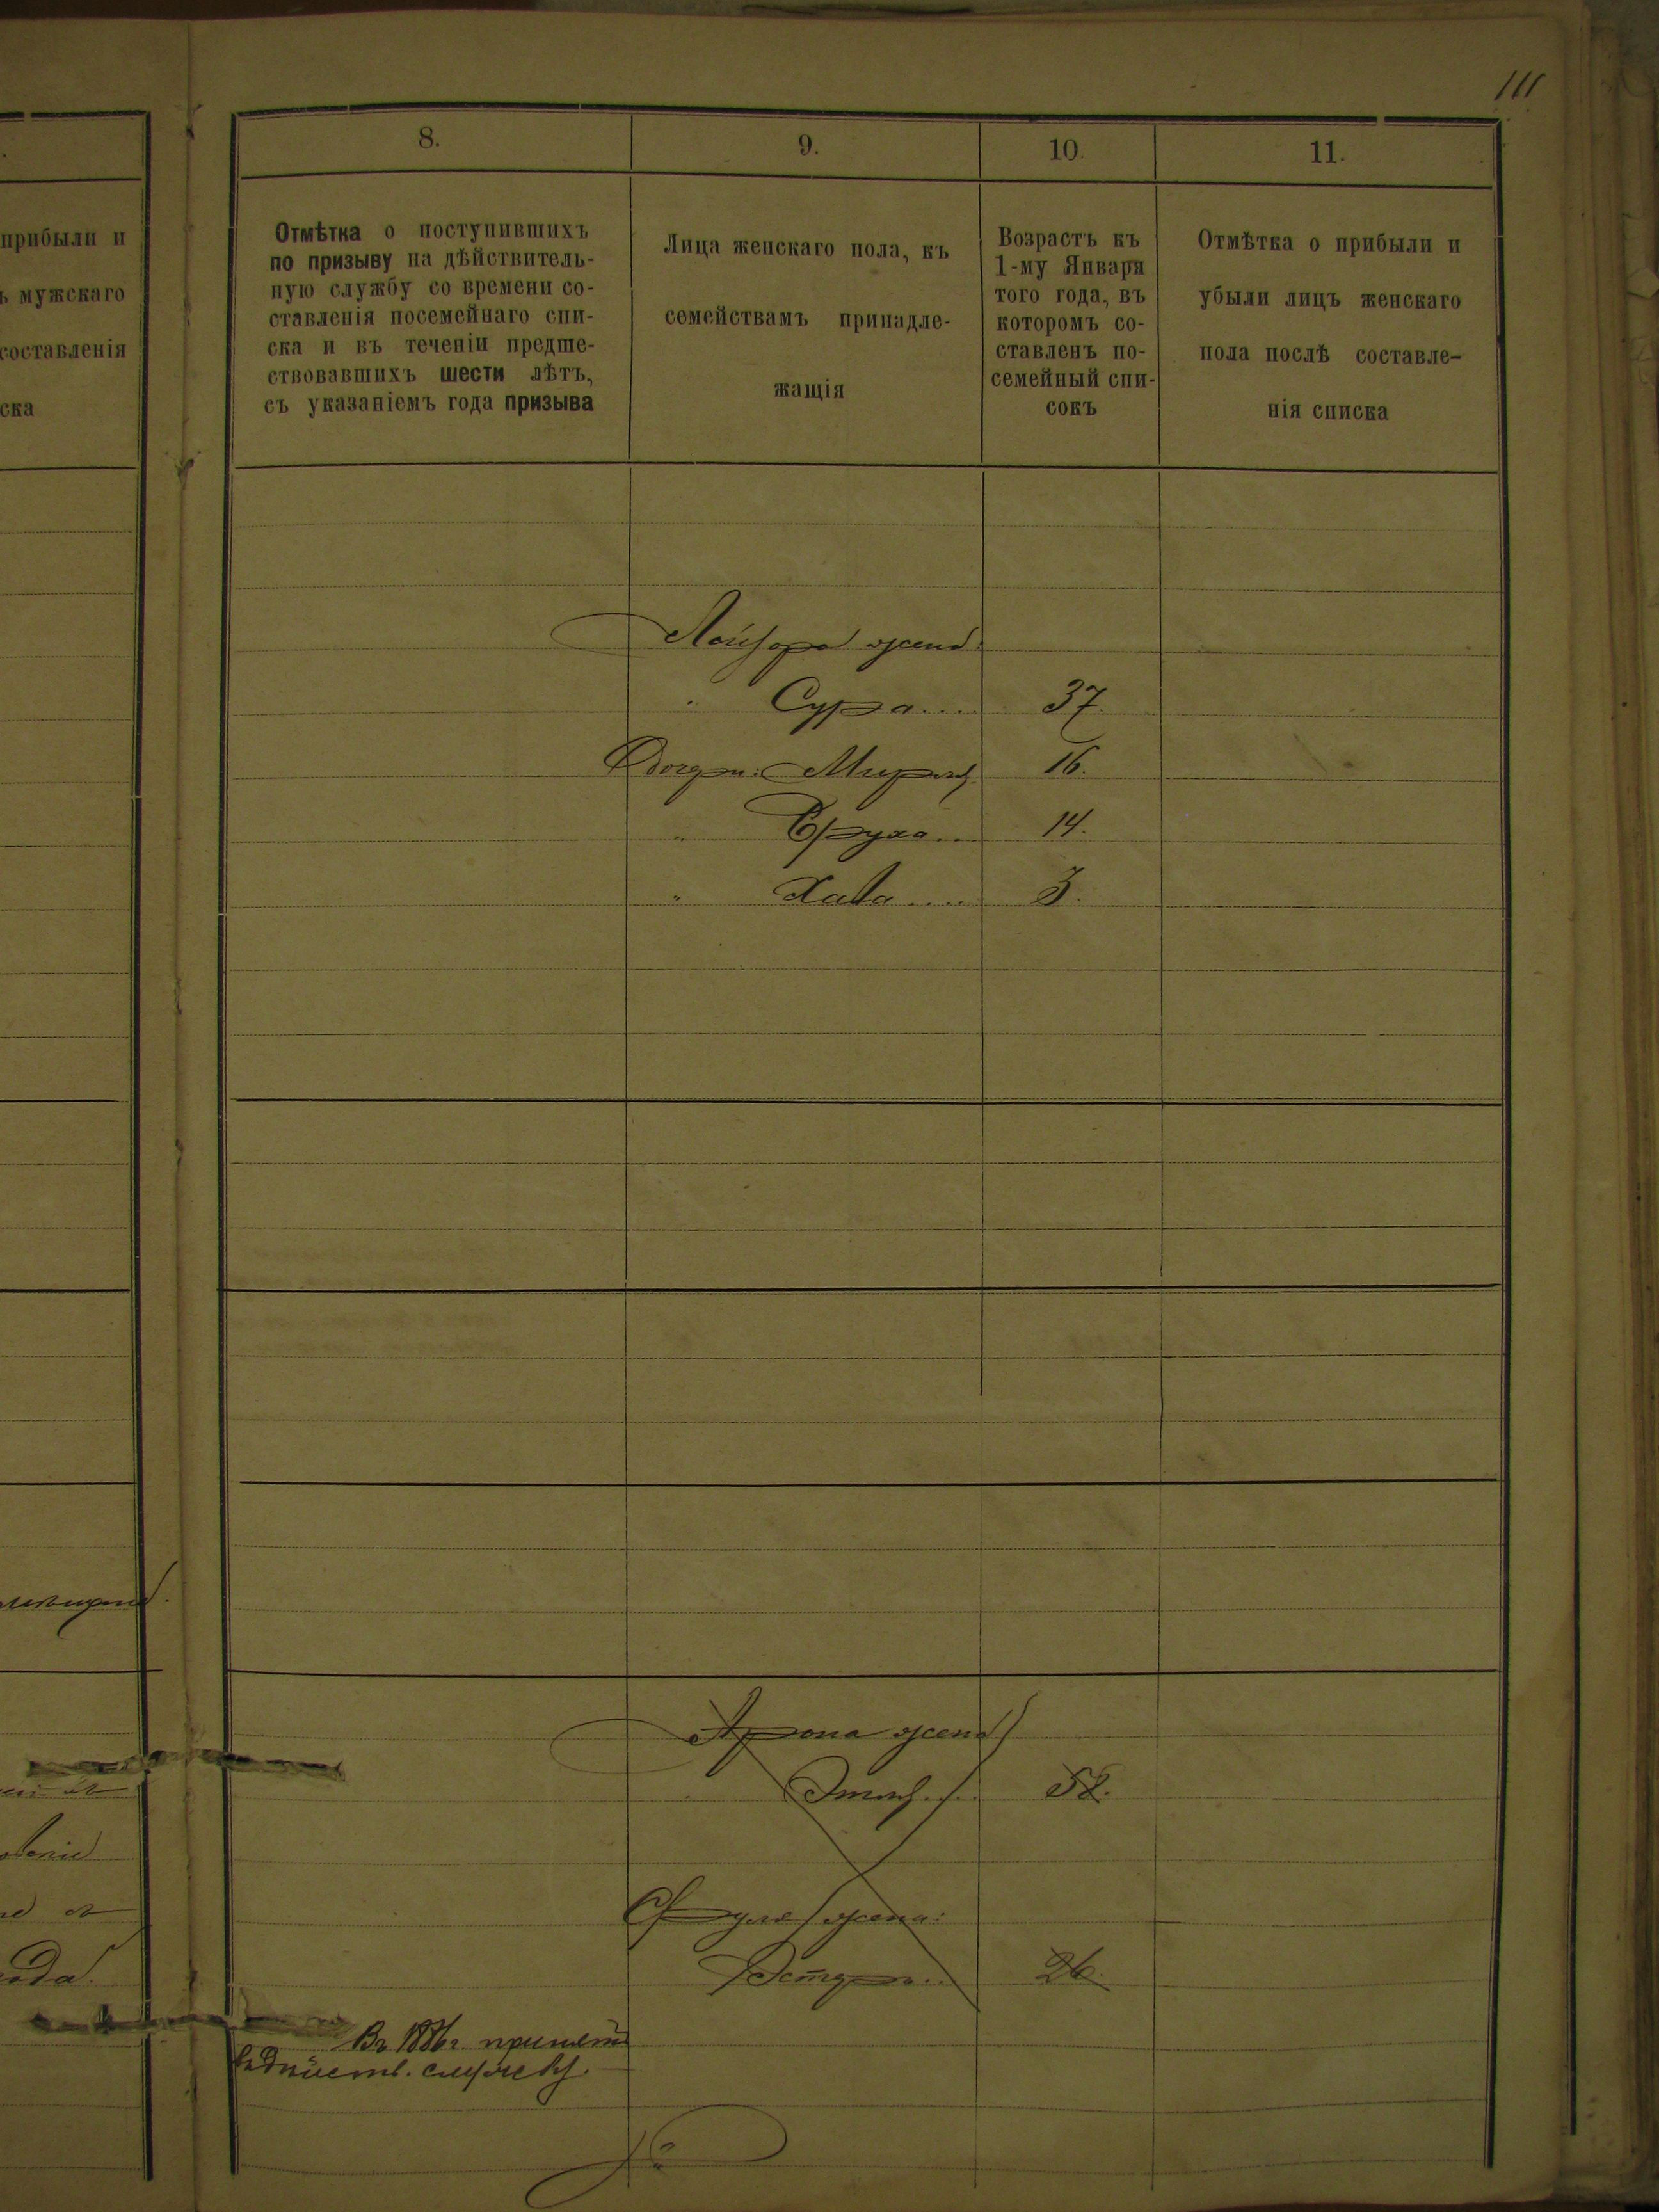 111
8.
9.
10.
11.
прибыли и
ъ мужскаго
составленія
ска
Отмѣтка о поступившихъ
по призыву на дѣйствитель-
ную службу со времени со-
ставленія посемейнаго спи-
ска и въ теченіи предше-
ствовавшихъ шести лѣтъ,
съ указаніемъ года призыва
Лица женскаго пола, къ
семействамъ принадле-
жащія
Возрастъ къ
1-му Января
того года, въ
которомъ со-
ставленъ по-
семейный спи-
сокъ
Отмѣтка о прибыли и
убыли лицъ женскаго
пола послѣ составле-
нія списка
Лейзера жена
" Сура.... 37.
Дочери: 16.
" Бруха... 14.
" Хава.... 3.
Арона жена
52.
жена:
Эстеръ.. 26.
Въ 1886 г. принятъ
въ дѣйств. службу.
ода.